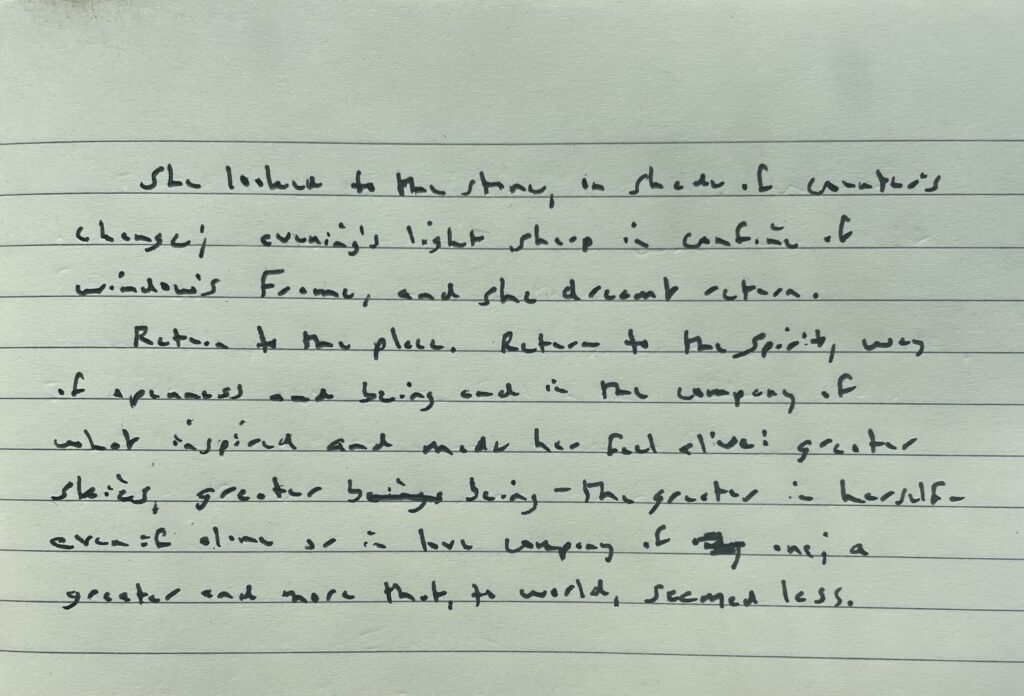 She looked to the stone, in shade of counter's
change; evening's light sharp in confine of
window's frame, and she dreamt return.
Return to the place. Return to the spirit, way
of openness and being and in the company of
what inspired and made her feel alive: greater
skies, greater being – the greater in herself –
even if alone or in love company of one; a
greater and more that, to world, seemed less.